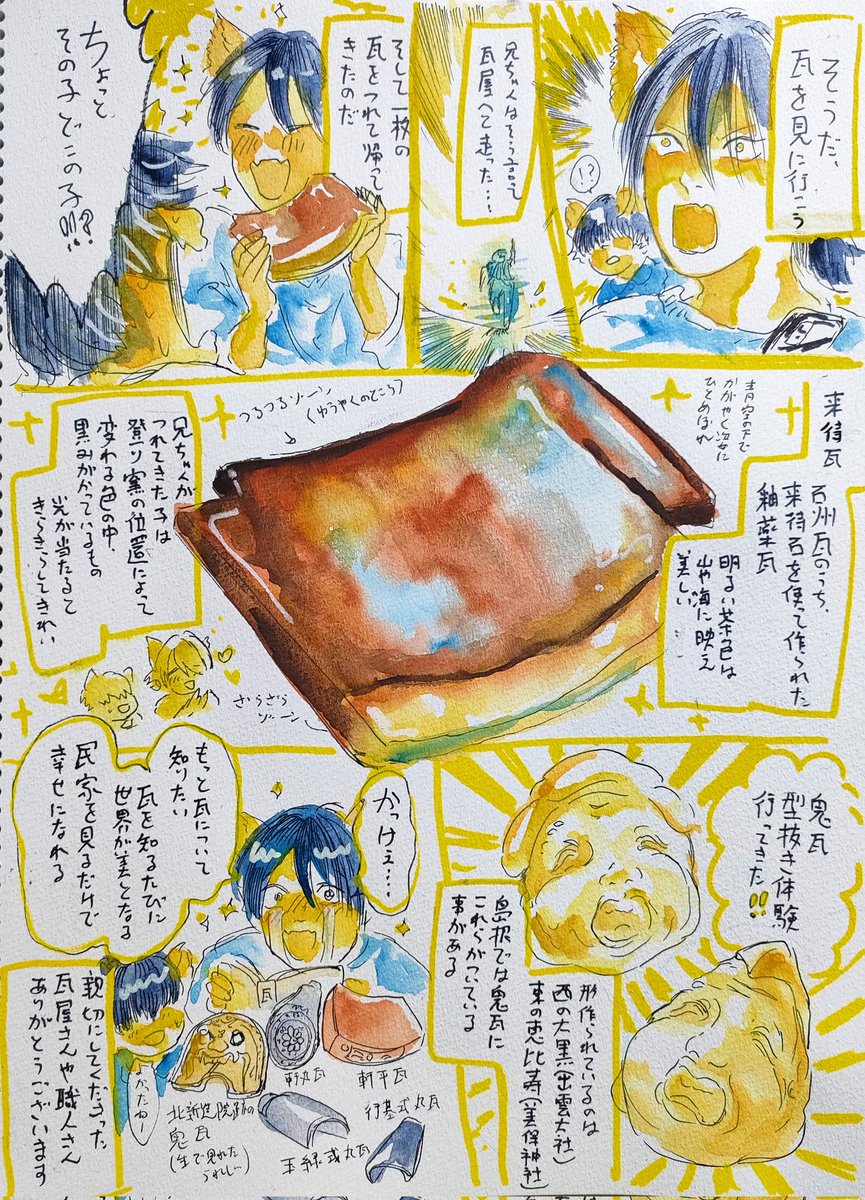 そうだ、
瓦を見に行こう
!?
兄ちゃんはそう言って
瓦屋へと走った…
そして一枚の
瓦をつれて帰って
きたのだ
ちょっと
その子どこの子!!?
来待瓦
石州瓦のうち、
来待石を使って作られた
釉薬瓦
明るい茶色は
山や海に映え
美しい
青空の下で
かがやく姿に
ひとめぼれ
つるつるゾーン
(ゆうやくのところ)
兄ちゃんが
つれてきた子は
登り窯の位置によって
変わる色の中、
黒みがかっているもの
光が当たると
きらきらしてきれい
ざらざら
ゾーン
鬼瓦
型抜き体験
行ってきた!!
島根では鬼瓦に
これらがついている
事がある
形作られているのは
西の大黒(出雲大社)
東の恵比寿(美保神社)
かっけぇ…
もっと瓦について
知りたい
瓦を知るたびに
世界が美しくなる
民家を見るだけで
幸せになれる
瓦
軒平瓦
軒丸瓦
行基式丸瓦
玉縁式丸瓦
鬼瓦
(生で見れた
うれしー)
よかったねー
親切にしてくださった
瓦屋さんや職人さん
ありがとうございます